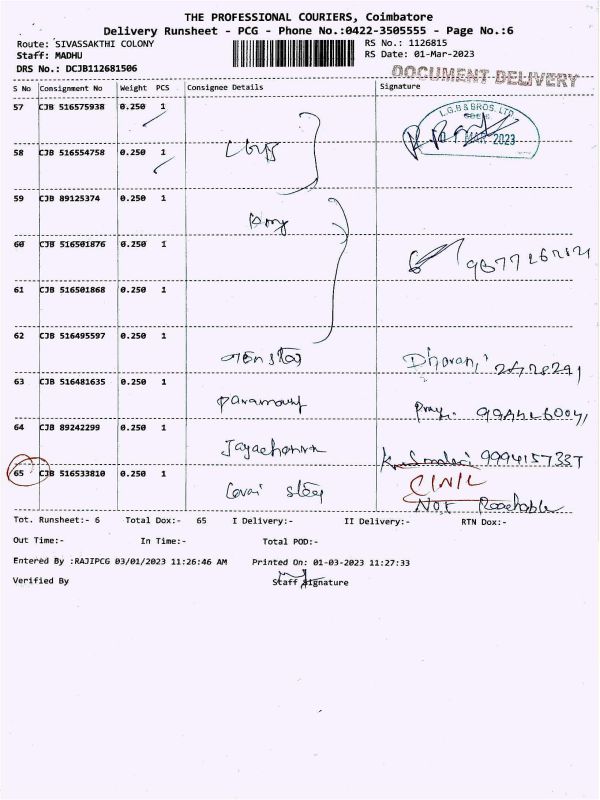 THE PROFESSIONAL COURIERS, Coimbatore
Delivery Runsheet - PCG - Phone No.:0422-3505555 - Page No.:6
Route: SIVASSAKTHI COLONY RS No.: 1126815
Staff: MADHU RS Date: 01-Mar-2023
DRS No.: DCJB112681506 DOCUMENT DELIVERY
S No Consignment No Weight PCS Consignee Details Signature
57 CJB 516575938 0.250 1
L.G.B & BROS. LTD
MAR 2023
58 CJB 516554758 0.250 1
59 CJB 89125374 0.250 1
60 CJB 516501876 0.250 1
61 CJB 516501868 0.250 1
62 CJB 516495597 0.250 1
Dharani
63 CJB 516481635 0.250 1
Paramount
64 CJB 89242299 0.250 1
9994157337
65 CJB 516533810 0.250 1
C/N/L
Covai Not Reachable
Tot. Runsheet:- 6 Total Dox:- 65 I Delivery:- II Delivery:- RTN Dox:-
Out Time:- In Time:- Total POD:-
Entered By :RAJIPCG 03/01/2023 11:26:46 AM Printed On: 01-03-2023 11:27:33
Verified By Staff Signature